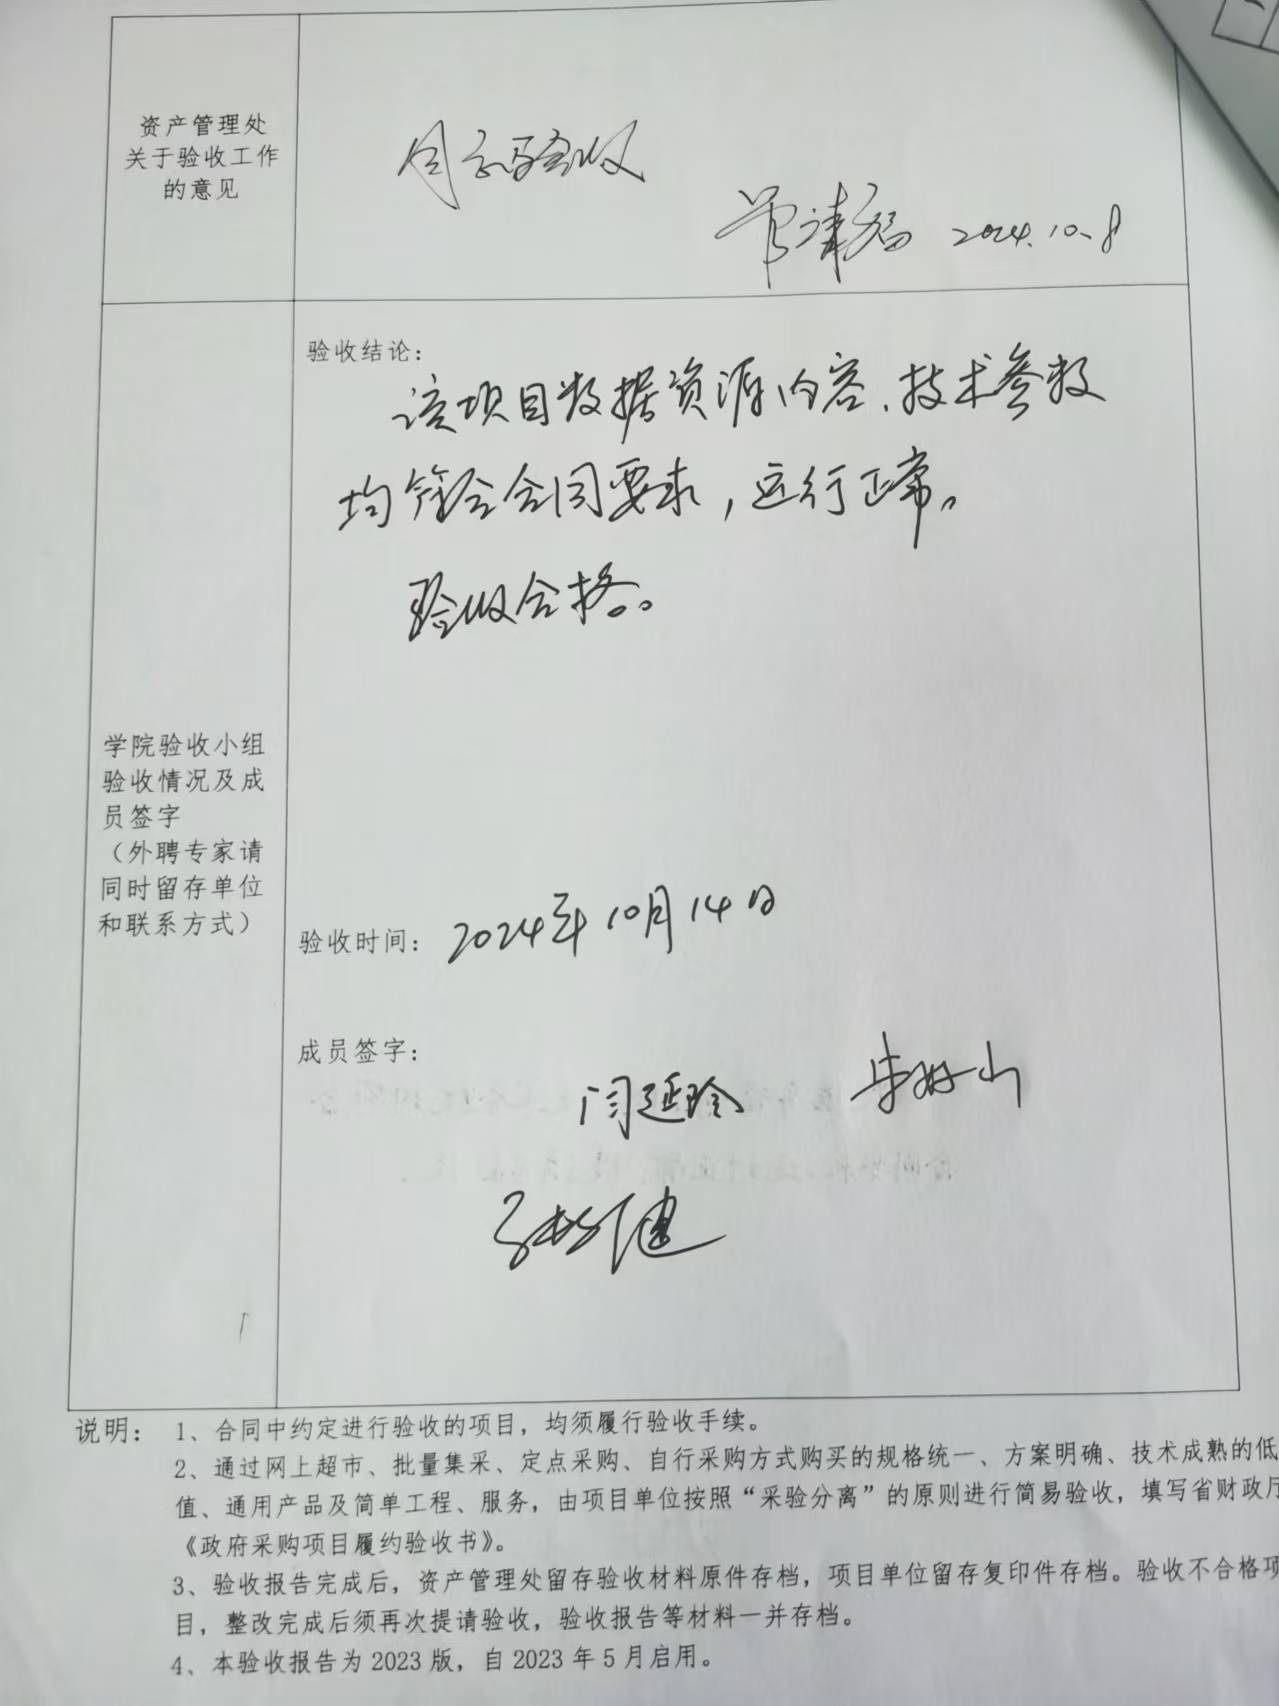 资产管理处
关于验收工作
的意见
同意验收
2024.10.8
验收结论：
该项目数据资源内容、技术参数
均符合合同要求，运行正常。
验收合格。
学院验收小组
验收情况及成
员签字
（外聘专家请
同时留存单位
和联系方式）
验收时间：2024年10月14日
成员签字：
闫延玲
说明：1、合同中约定进行验收的项目，均须履行验收手续。
2、通过网上超市、批量集采、定点采购、自行采购方式购买的规格统一、方案明确、技术成熟的低
值、通用产品及简单工程、服务，由项目单位按照“采验分离”的原则进行简易验收，填写省财政厅
《政府采购项目履约验收书》。
3、验收报告完成后，资产管理处留存验收材料原件存档，项目单位留存复印件存档。验收不合格项
目，整改完成后须再次提请验收，验收报告等材料一并存档。
4、本验收报告为2023版，自2023年5月启用。